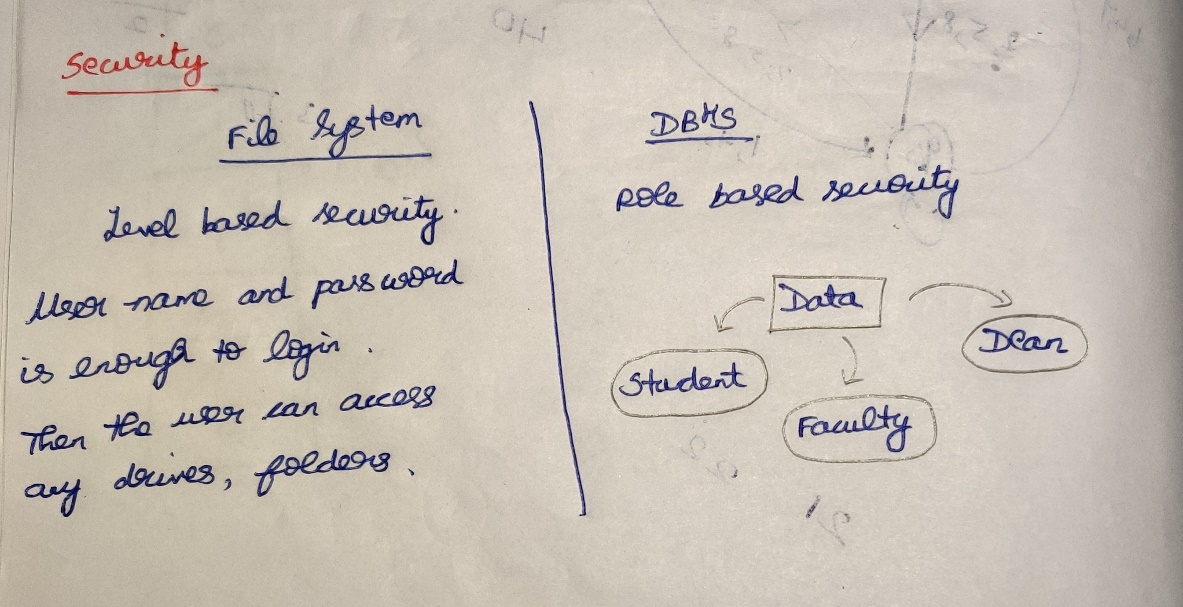 Security
File System
Level based security.
User name and password
is enough to login.
Then the user can access
any drives, folders.
DBMS
Role based security
Data
Student
Dean
Faculty